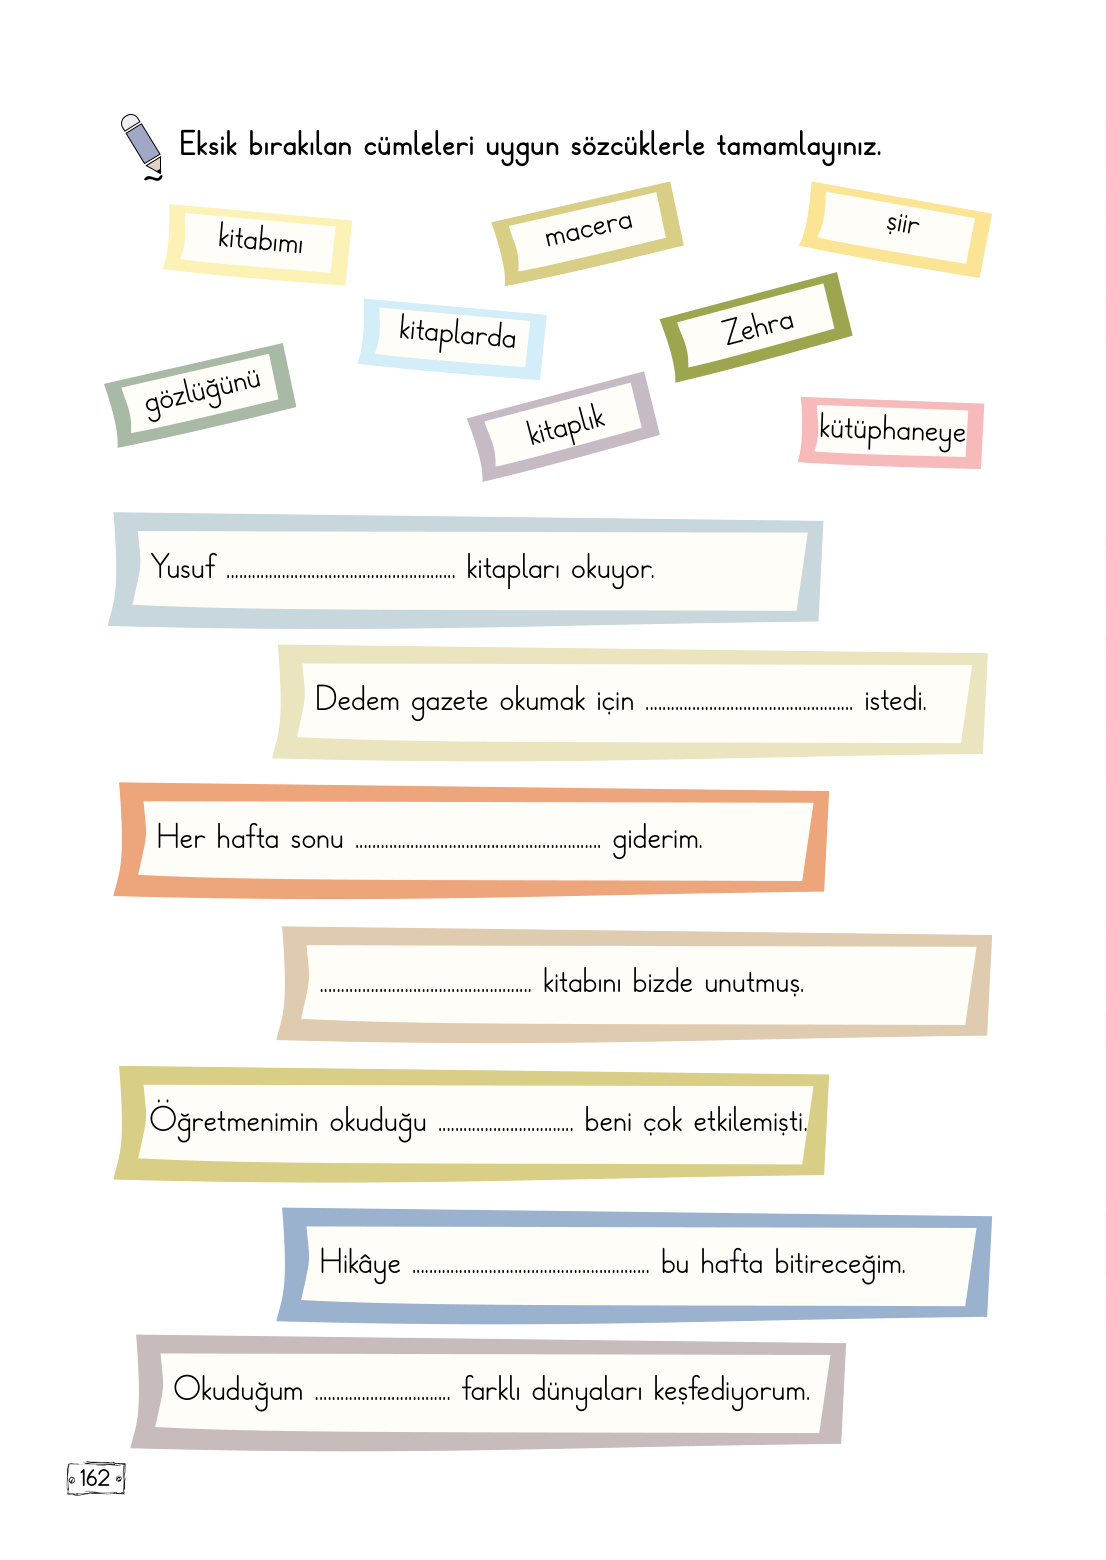 Eksik bırakılan cümleleri uygun sözcüklerle tamamlayınız.
kitabımı
macera
şiir
kitaplarda
Zehra
gözlüğünü
kitaplık
kütüphaneye
Yusuf ...................................................... kitapları okuyor.
Dedem gazete okumak için ................................................. istedi.
Her hafta sonu .......................................................... giderim.
.................................................. kitabını bizde unutmuş.
Öğretmenimin okuduğu ................................ beni çok etkilemişti.
Hikâye ........................................................ bu hafta bitireceğim.
Okuduğum ................................ farklı dünyaları keşfediyorum.
162